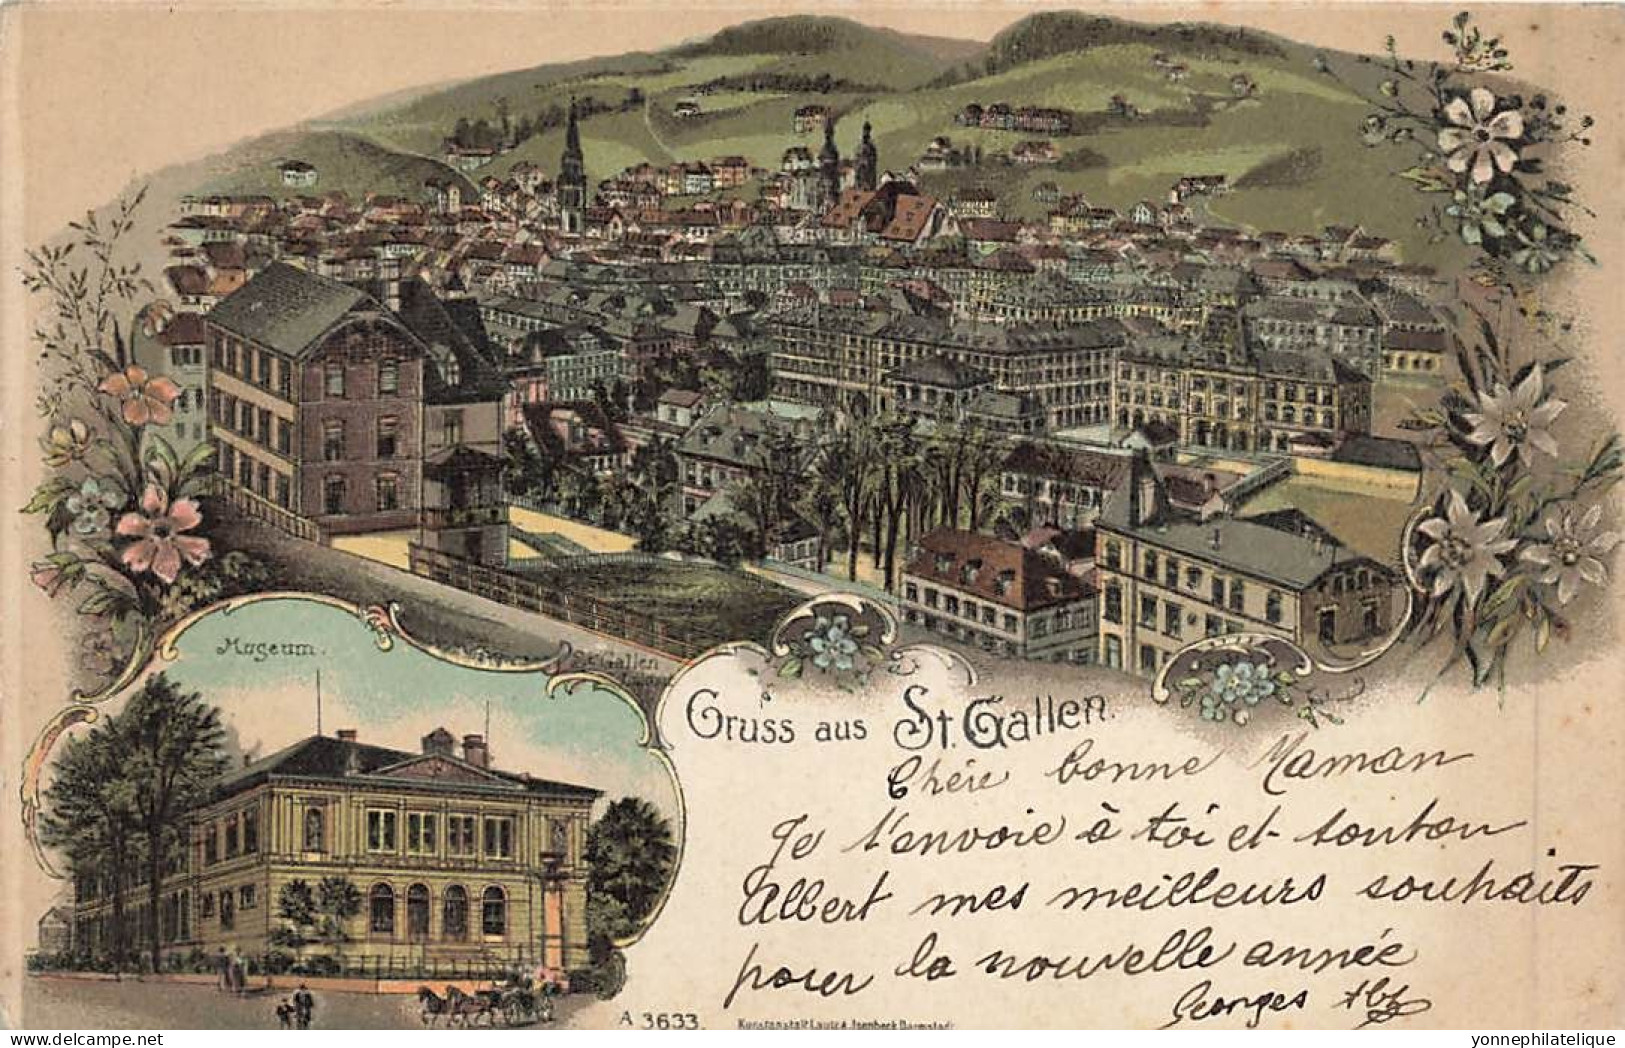 Museum.
St. Gallen
Gruss aus St. Gallen.
Chère bonne Maman
Je t'envoie à toi et tonton
Albert mes meilleurs souhaits
pour la nouvelle année
Georges
A 3633.
Kunstanstalt Lautz & Isenbeck Darmstadt
yonnephilatelique